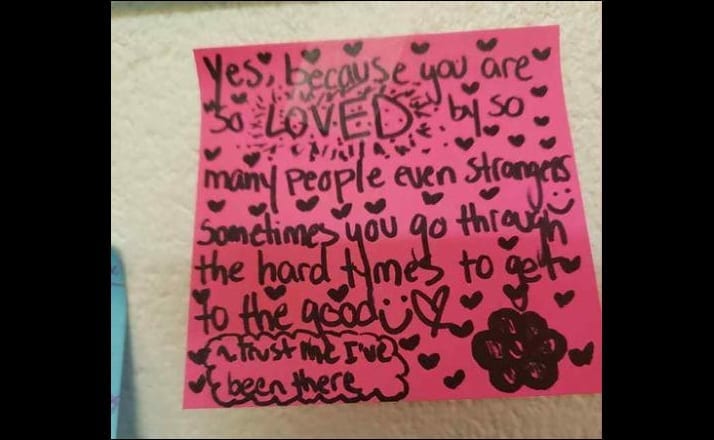 Yes, because you are
so LOVED by so
many people even strangers
sometimes you go through
the hard tymes to get
to the good
~ Trust me I've
been there